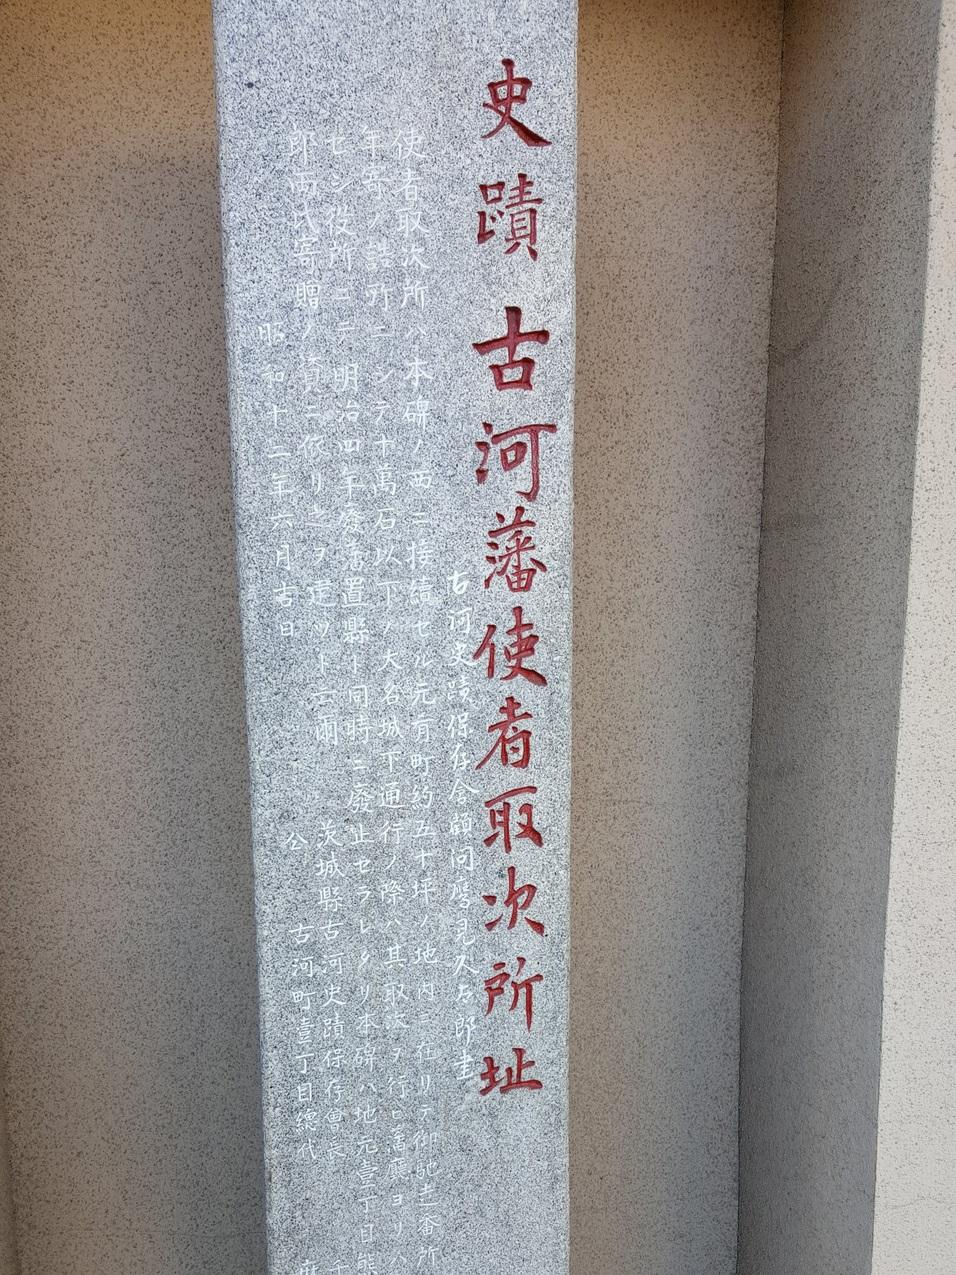 史蹟 古河藩使者取次所址
古河史蹟保存會顧問鷹見久太郎書
使者取次所ハ本碑ノ西ニ接續セル元有町約五十坪ノ地內ニ在リテ御馳走番所
年寄ノ詰所ニシテ十萬石以下ノ大名城下通行ノ際ハ其取次ヲ行ヒ藩廳ヨリハ
セシ役所ニテ明治四年廢藩置縣ト同時ニ廢止セラレタリ本碑ハ地元壹丁目熊
郎両氏寄贈ノ資ニ依リ之ヲ建ツト云爾 茨城縣古河史蹟保存會長
昭和十二年六月吉日 公 古河町壹丁目總代